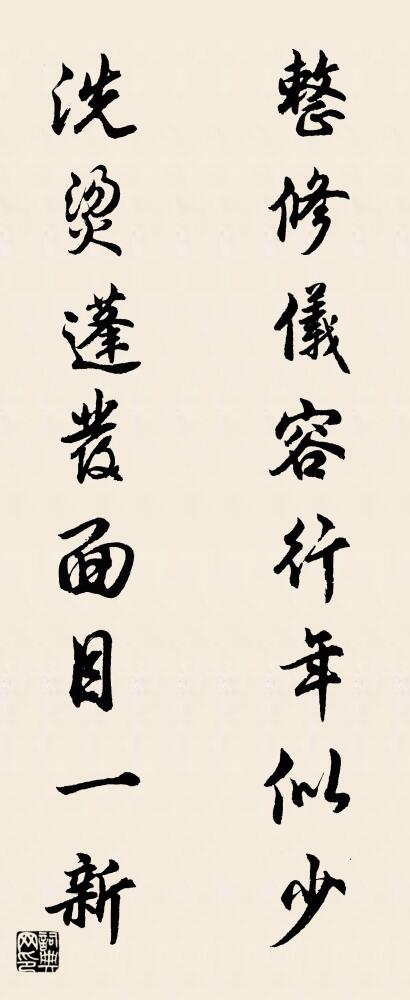 整修儀容行年似少
洗燙蓬發面目一新
詞典网印